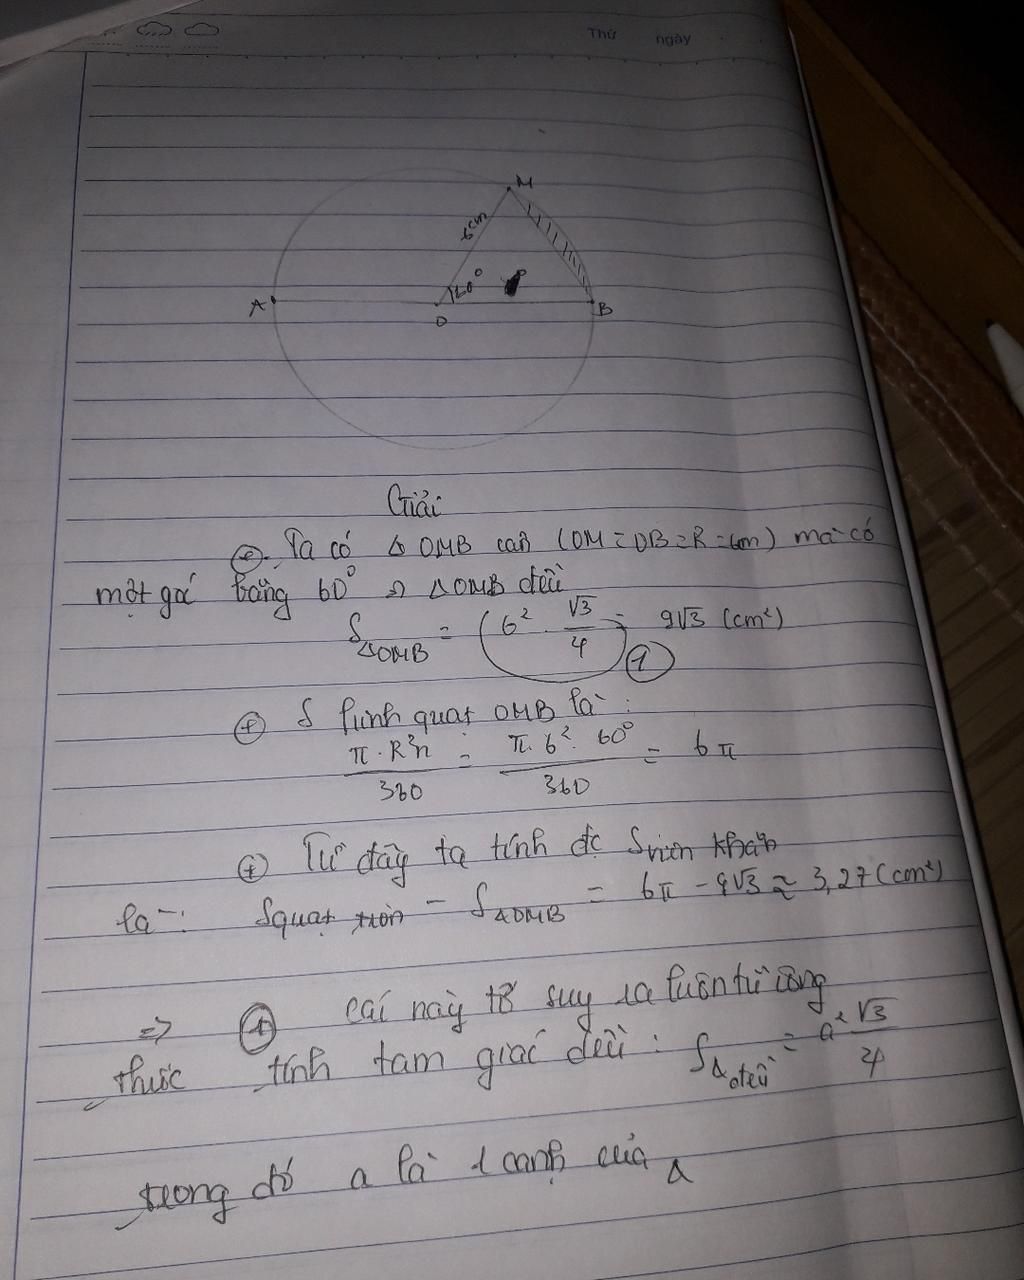 Thứ ngày
M
6cm
60°
A
O
B
Giải
⊕. Ta có Δ OMB cân (OM = OB = R = 6cm) mà có
một góc bằng 60° => Δ OMB đều
S ΔOMB = (6² · √3/4) = 9√3 (cm²)
①
⊕ S hình quạt OMB là:
π · R²n / 360 = π · 6² · 60° / 360 = 6π
⊕ Từ đây ta tính đc S viên
là: S quạt tròn - S ΔOMB = 6π - 9√3 ≈ 3,27 (cm²)
=> ① cái này tớ suy ra luôn từ công
thức tính tam giác đều: S Δ đều = a² √3 / 4
trong đó a là 1 cạnh của Δ